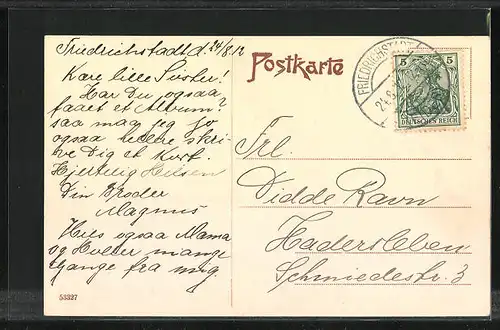 Friedrichstadt d. 24/8 12
Kære lille Søster!
Har Du ogsaa
faaet et Album?
saa maa jeg jo
ogsaa hellere skri-
ve Dig et Kort.
Hjertelig Hilsen
Din Broder
Magnus
Hils ogsaa Mama
og mange
Gange fra mig.
53327
Postkarte
FRIEDRICHSTADT
24.8
5 5
DEUTSCHES REICH
Frl.
Didde Ravn
Hadersleben
Schmiedestr. 3